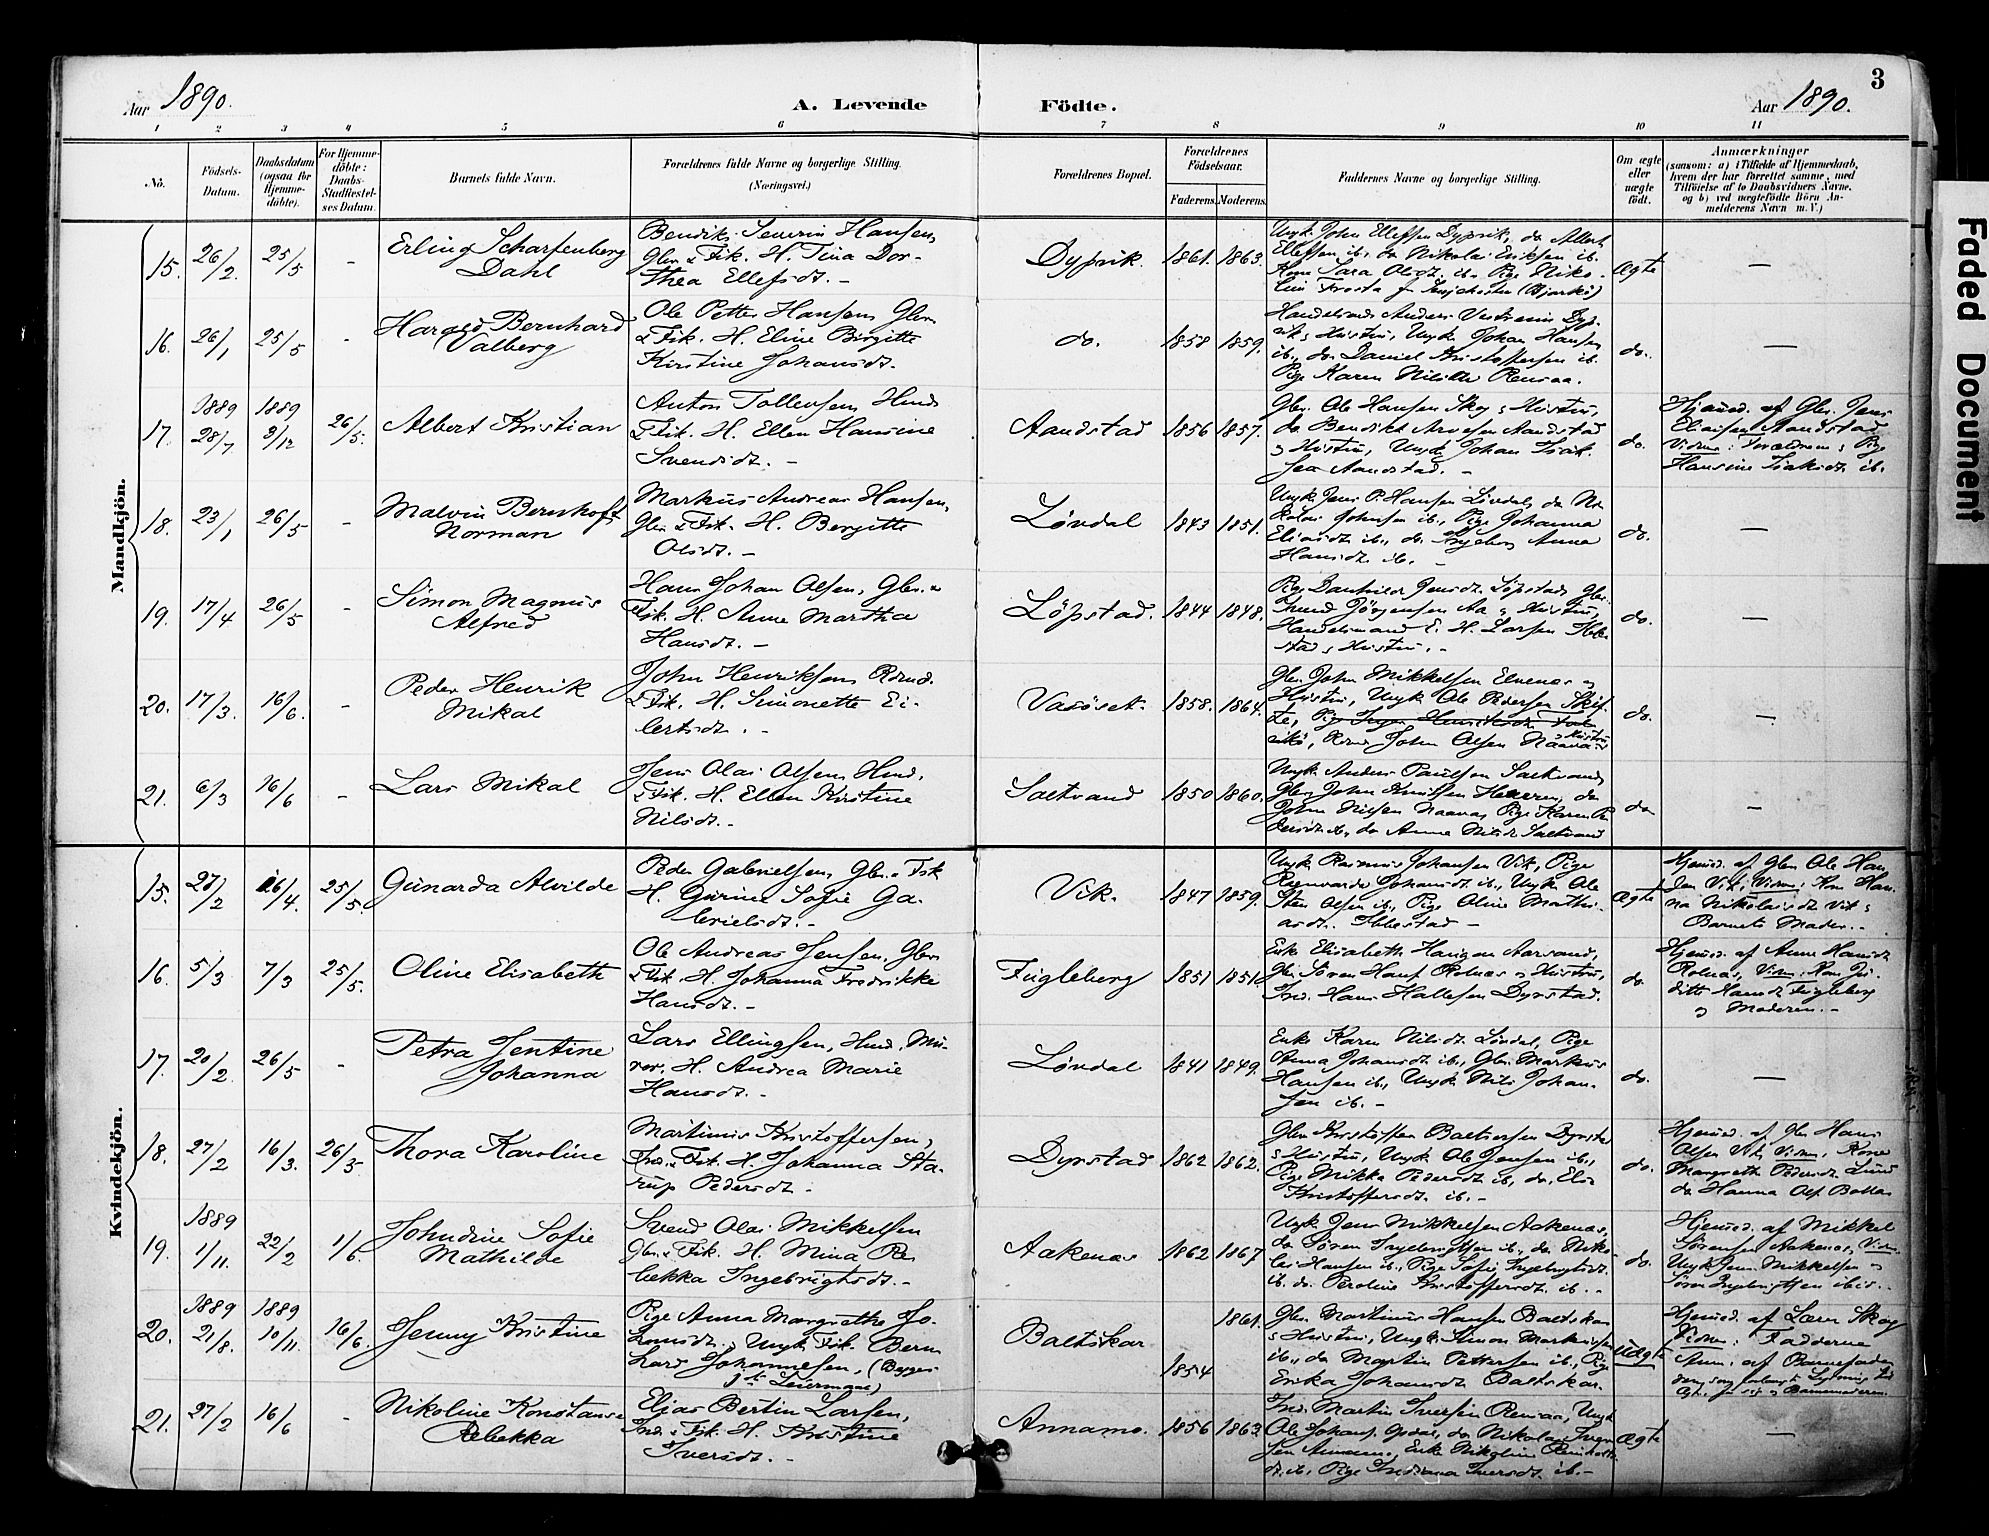 3
Aar 1890.
A. Levende Födte.
Aar 1890.
1 2 3 4 5 6 7 8 9 10 11
No.
Födsels-
Datum.
Daabsdatum
(ogsaa for
Hjemme-
döbte).
For Hjemme-
döbte:
Daabs-
Stadfæstel-
ses Datum.
Barnets fulde Navn.
Forældrenes fulde Navne og borgerlige Stilling.
(Næringsvei.)
Forældrenes Bopæl.
Forældrenes
Födselsaar.
Faderens. Moderens.
Faddernes Navne og borgerlige Stilling.
Om ægte
eller
uægte
födt.
Anmærkninger
(saasom: a) i Tilfælde af Hjemmedaab,
hvem der har forrettet samme, med
Tilföielse af to Daabsvidners Navne,
og b) ved uægtefödte Börn An-
melderens Navn m. V.)
Mandkjön.
15. 26/2 25/5 -
Erling Scharfenberg
Dahl
Bendik Severin Hansen,
Gbr. & Fisk. H. Tina Dor-
thea Ellefsdt. -
Dyprik. 1861. 1863.
Ungk. John Ellefsen Dyprik, do Albert
Ellefsen ib., do Nikolai Eriksen ib.
Kone Sara Olsdt. ib., Pige Niko-
(Bjarkö)
Ægte —
16. 26/1 25/5 -
Harald Bernhard
Valberg
Ole Petter Hansen, Gbr.
& Fisk. H. Eline Birgitte
Kristine Johansdt.
do. 1858 1859.
Handelsmand Anders
Hustru, Ungk. Johan Hansen
ib., do Daniel Kristoffersen ib.
Pige Karen Rensaa.
do. —
17. 1889 28/7 1889 3/12 26/5.
Albert Kristian
Anton Tollevsen, Hmd.
& Fisk. H. Ellen Hansine
Svendsdt. -
Aandstad 1856 1857.
Gbr. Ole Hansen Skog & Hustru,
do Bendikt Arnesen Aandstad
& Hustru, Ungk. Johan Isak-
sen Aandstad. -
do.
Hjemmed. af Gbr. Jens
Eliasen Aandstad
Vidner: Forældrene & Pige
Hansine Isaksdt. ib.
18. 23/1 26/5 -
Malvin Bernhoft
Norman
Markus Andreas Hansen,
Gbr. & Fisk. H. Bergitte
Olsdt. -
Løvdal 1843 1851.
Ungk. Jens P. Hansen Løvdal, do Ni-
kolai Johnsen ib., Pige Johanna
Eliasdt. ib., do Ingeborg Anna
Hansdt. ib. -
do. —
19. 17/4 26/5 -
Simon Magnus
Alfred
Hans Johan Olsen, Gbr. &
Fisk. H. Anne Martha
Hansdt. -
Löpstad. 1844 1848.
Pige Jensdt. Löpstad, Gbr.
Knud Jörgensen Aa & Hustru,
Handelsmand E. H. Larsen Ibbe-
stad & Hustru. -
do. —
20. 17/3. 16/6. -
Peder Henrik
Mikal
John Henriksen, Rdmd.
& Fisk. H. Simonette Ei-
lertsdt. -
Vasöset. 1858. 1864.
Gbr. John Mikkelsen Elvenes &
Hustru, Ungk. Ole Pedersen Skif-
te, Pige Inger Henriksdt.
John Olsen & Hustru
do. —
21. 6/3 16/6 -
Lars Mikal
Jens Olai Olsen, Hmd.
& Fisk. H. Ellen Kirstine
Nilsdt. -
Saltvand 1850 1860.
Ungk. Anders Paulsen Saltvand,
Gbr. John Knutsen do
John Nilsen Pige Karen Pe-
dersdt. ib., do Anna Nilsdt. Saltvand
do —
Kvindekjön.
15. 27/2 16/4. 25/5.
Gunarda Alvilde
Peder Gabrielsen, Gbr. & Fisk.
H. Gurine Sofie Ga-
brielsdt. -
Vik. 1847 1859.
Ungk. Rasmus Johansen Vik, Pige
Johansdt. ib., Ungk. Ole
Sten Olsen ib., Pige Oline Mathi-
asdt. Ibbestad -
Ægte
Hjemmed. af Gbr. Ole Han-
sen Vik; Vidner: Kone Han-
na Nikolaisdt. Vik &
Barnets Moder. -
16. 5/3 7/3 25/5.
Oline Elisabeth
Ole Andreas Jensen, Gbr.
& Fisk. H. Johanna Fredrikke
Hansdt. -
Fugleberg 1851 1851.
Enke Elisabeth Aarsand,
Gbr. Sören Hansen Rolnes & Hustru,
Ind. Hans Hallesen Dyrstad.
do.
Hjemmed. af Anne Hansdt.
Rolnes, Vidner: Kone Ju-
ditte Hansdt. Fugleberg
& Moderen. -
17. 20/2 26/5 -
Petra Jentine
Johanna
Lars Ellingsen, Hmd., Mu-
rer. H. Andrea Marie
Hansdt. -
Løvdal 1841 1849.
Enke Karen Nilsdt. Løvdal, Pige
Anna Johansdt. ib., Gbr. Markus
Hansen ib., Ungk. Nils Johan-
sen ib. -
do. —
18. 27/2 16/3. 26/5
Thora Karoline
Martinus Kristoffersen,
Ind. & Fisk. H. Johanna Sta-
rup Pedersdt. -
Dyrstad 1862 1862.
Gbr. Kristoffer Baltsersen Dyrstad
& Hustru, Ungk. Ole Jensen ib.,
Pige Mikka Pedersdt. ib., do. Elen
Kristoffersdt. ib. -
do.
Hjemmed. af Gbr. Hans
Olsen Vik, Vidner: Kone
Margreth Pedersdt. Lund
do Hanna
19. 1889 1/11. 22/2 1/6.
Johndine Sofie
Mathilde
Svend Olai Mikkelsen
Gbr. & Fisk. H. Mina Re-
bekka Ingebrigtsdt. -
Aakenes 1862 1867
Ungk. Jens Mikkelsen Aakenes,
do Sören Ingebrigtsen ib., do. Niko-
lai Hansen ib., Pige Sofie Ingebrigtsdt.
ib. do. Peroline Kristoffersdt. ib. -
do.
Hjemmed. af Mikkel
Sørensen Aakenes, Vidner:
Ungk. Jens Mikkelsen &
Sören Ingebrigtsen ibid. -
20. 1889 21/8. 1889 10/11. 16/6.
Jenny Kristine
Pige Anna Margrethe Jo-
hansdt. & Ungk. Fisk. Bern-
hard Johannesen, (Begges
1ste Leiermaal)
Baltskar 1854 1861.
Gbr. Martinus Hansen Baltskar
& Hustru, Ungk. Simon Markussen
ib., do Martin Pettersen ib., Pige
Erika Johansdt. Baltskar.
Uægte
Hjemmed. af Lærer Skog
Vidner: Fadderne
Anm: af Barnefaderen
21. 27/2 16/6 -
Nikoline Konstanse
Rebekka
Elias Bertin Larsen,
Ind. & Fisk. H. Kristine
Iversdt. -
Annamo. 1856 1863.
Ind. Martin Iversen Rensaa, Ungk.
Ole Johans. do Nikolai Iver-
sen Annamo, Enke Nikoline
ib., Pige Indiana Iversdt. ib. -
Ægte —
Faded Document